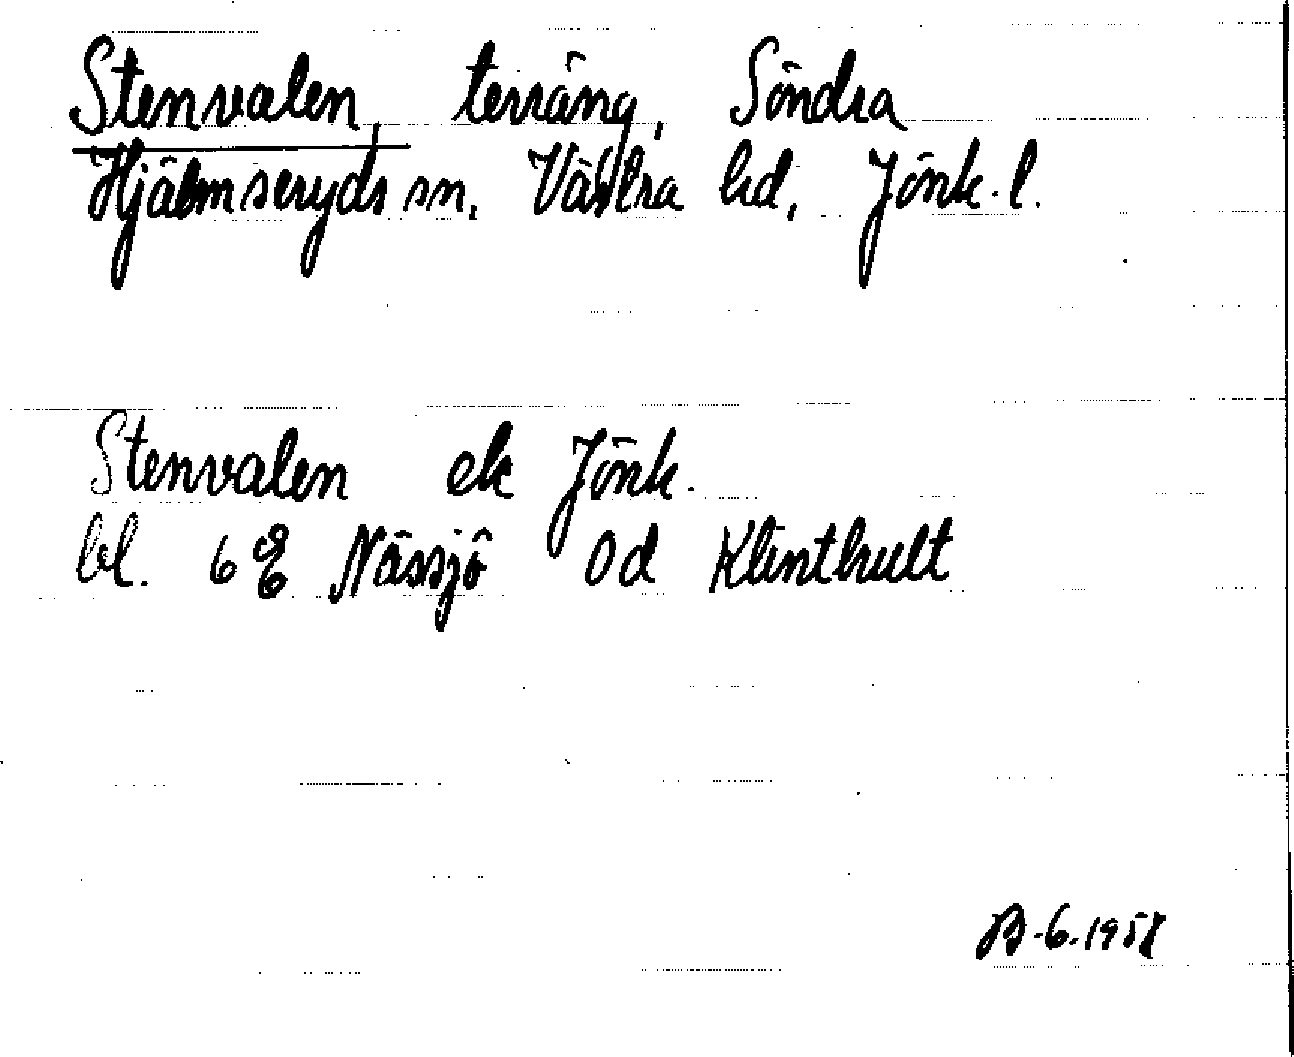 Stenvalen, terräng, Södra
Hjälmseryds sn, Västra hd, Jönk. l.
Stenvalen ek Jönk.
bl. 6E Nässjö Od Klinthult